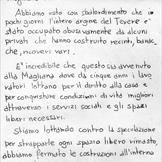 Abbiamo visto con sbalordimento che in
pochi giorni l'intero argine del Tevere e'
stato occupato abusivamente da alcuni
privati che hanno costruito recinti, barac
che, ricoveri vari.
E' incredibile che questo sia avvenuto
alla Magliana dove da cinque anni i lavo
ratori lottano per il diritto alla casa e
per conquistare condizioni di vita migliori
attraverso i servizi sociali e gli spazi
liberi necessari.
Stiamo lottando contro la speculazione
per strapparle ogni spazio libero rimasto,
abbiamo fermato le costruzioni all'interno